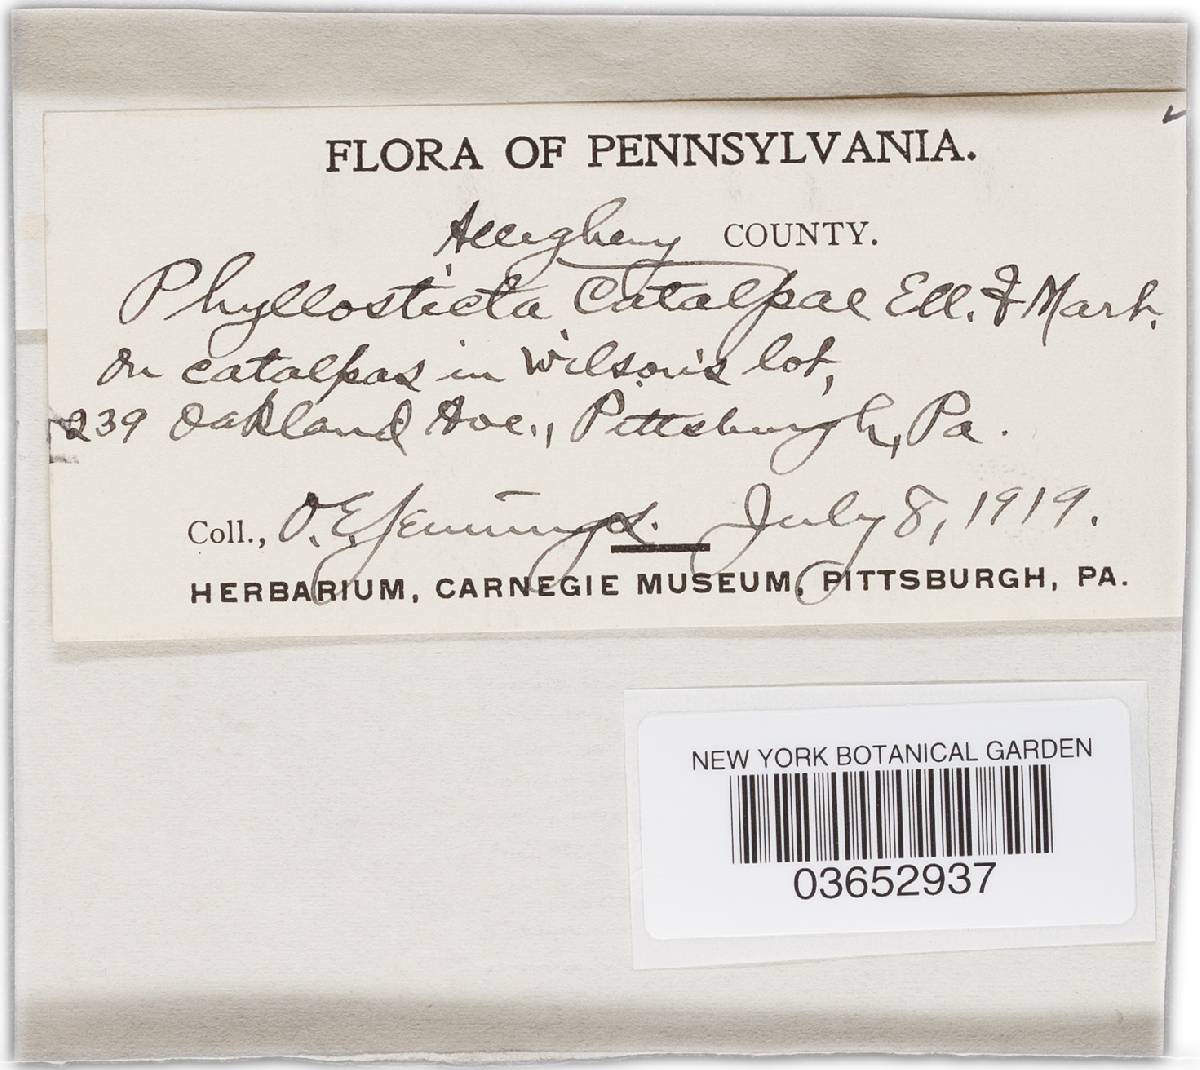 FLORA OF PENNSYLVANIA.
Allegheny COUNTY.
Phyllosticta Catalpae Ell. & Mart.
On catalpas in Wilson's lot,
239 Oakland Ave., Pittsburgh, Pa.
Coll., O. E. Jennings. July 8, 1919.
HERBARIUM, CARNEGIE MUSEUM, PITTSBURGH, PA.
NEW YORK BOTANICAL GARDEN
03652937